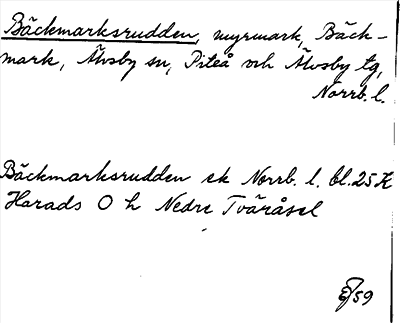 Bäckmarksrudden, myrmark, Bäck-
mark, Älvsby sn, Piteå och Älvsby tg,
Norrb. l.
Bäckmarksrudden ek Norrb. l. bl. 25 K
Harads O h Nedre Tväråsel
59